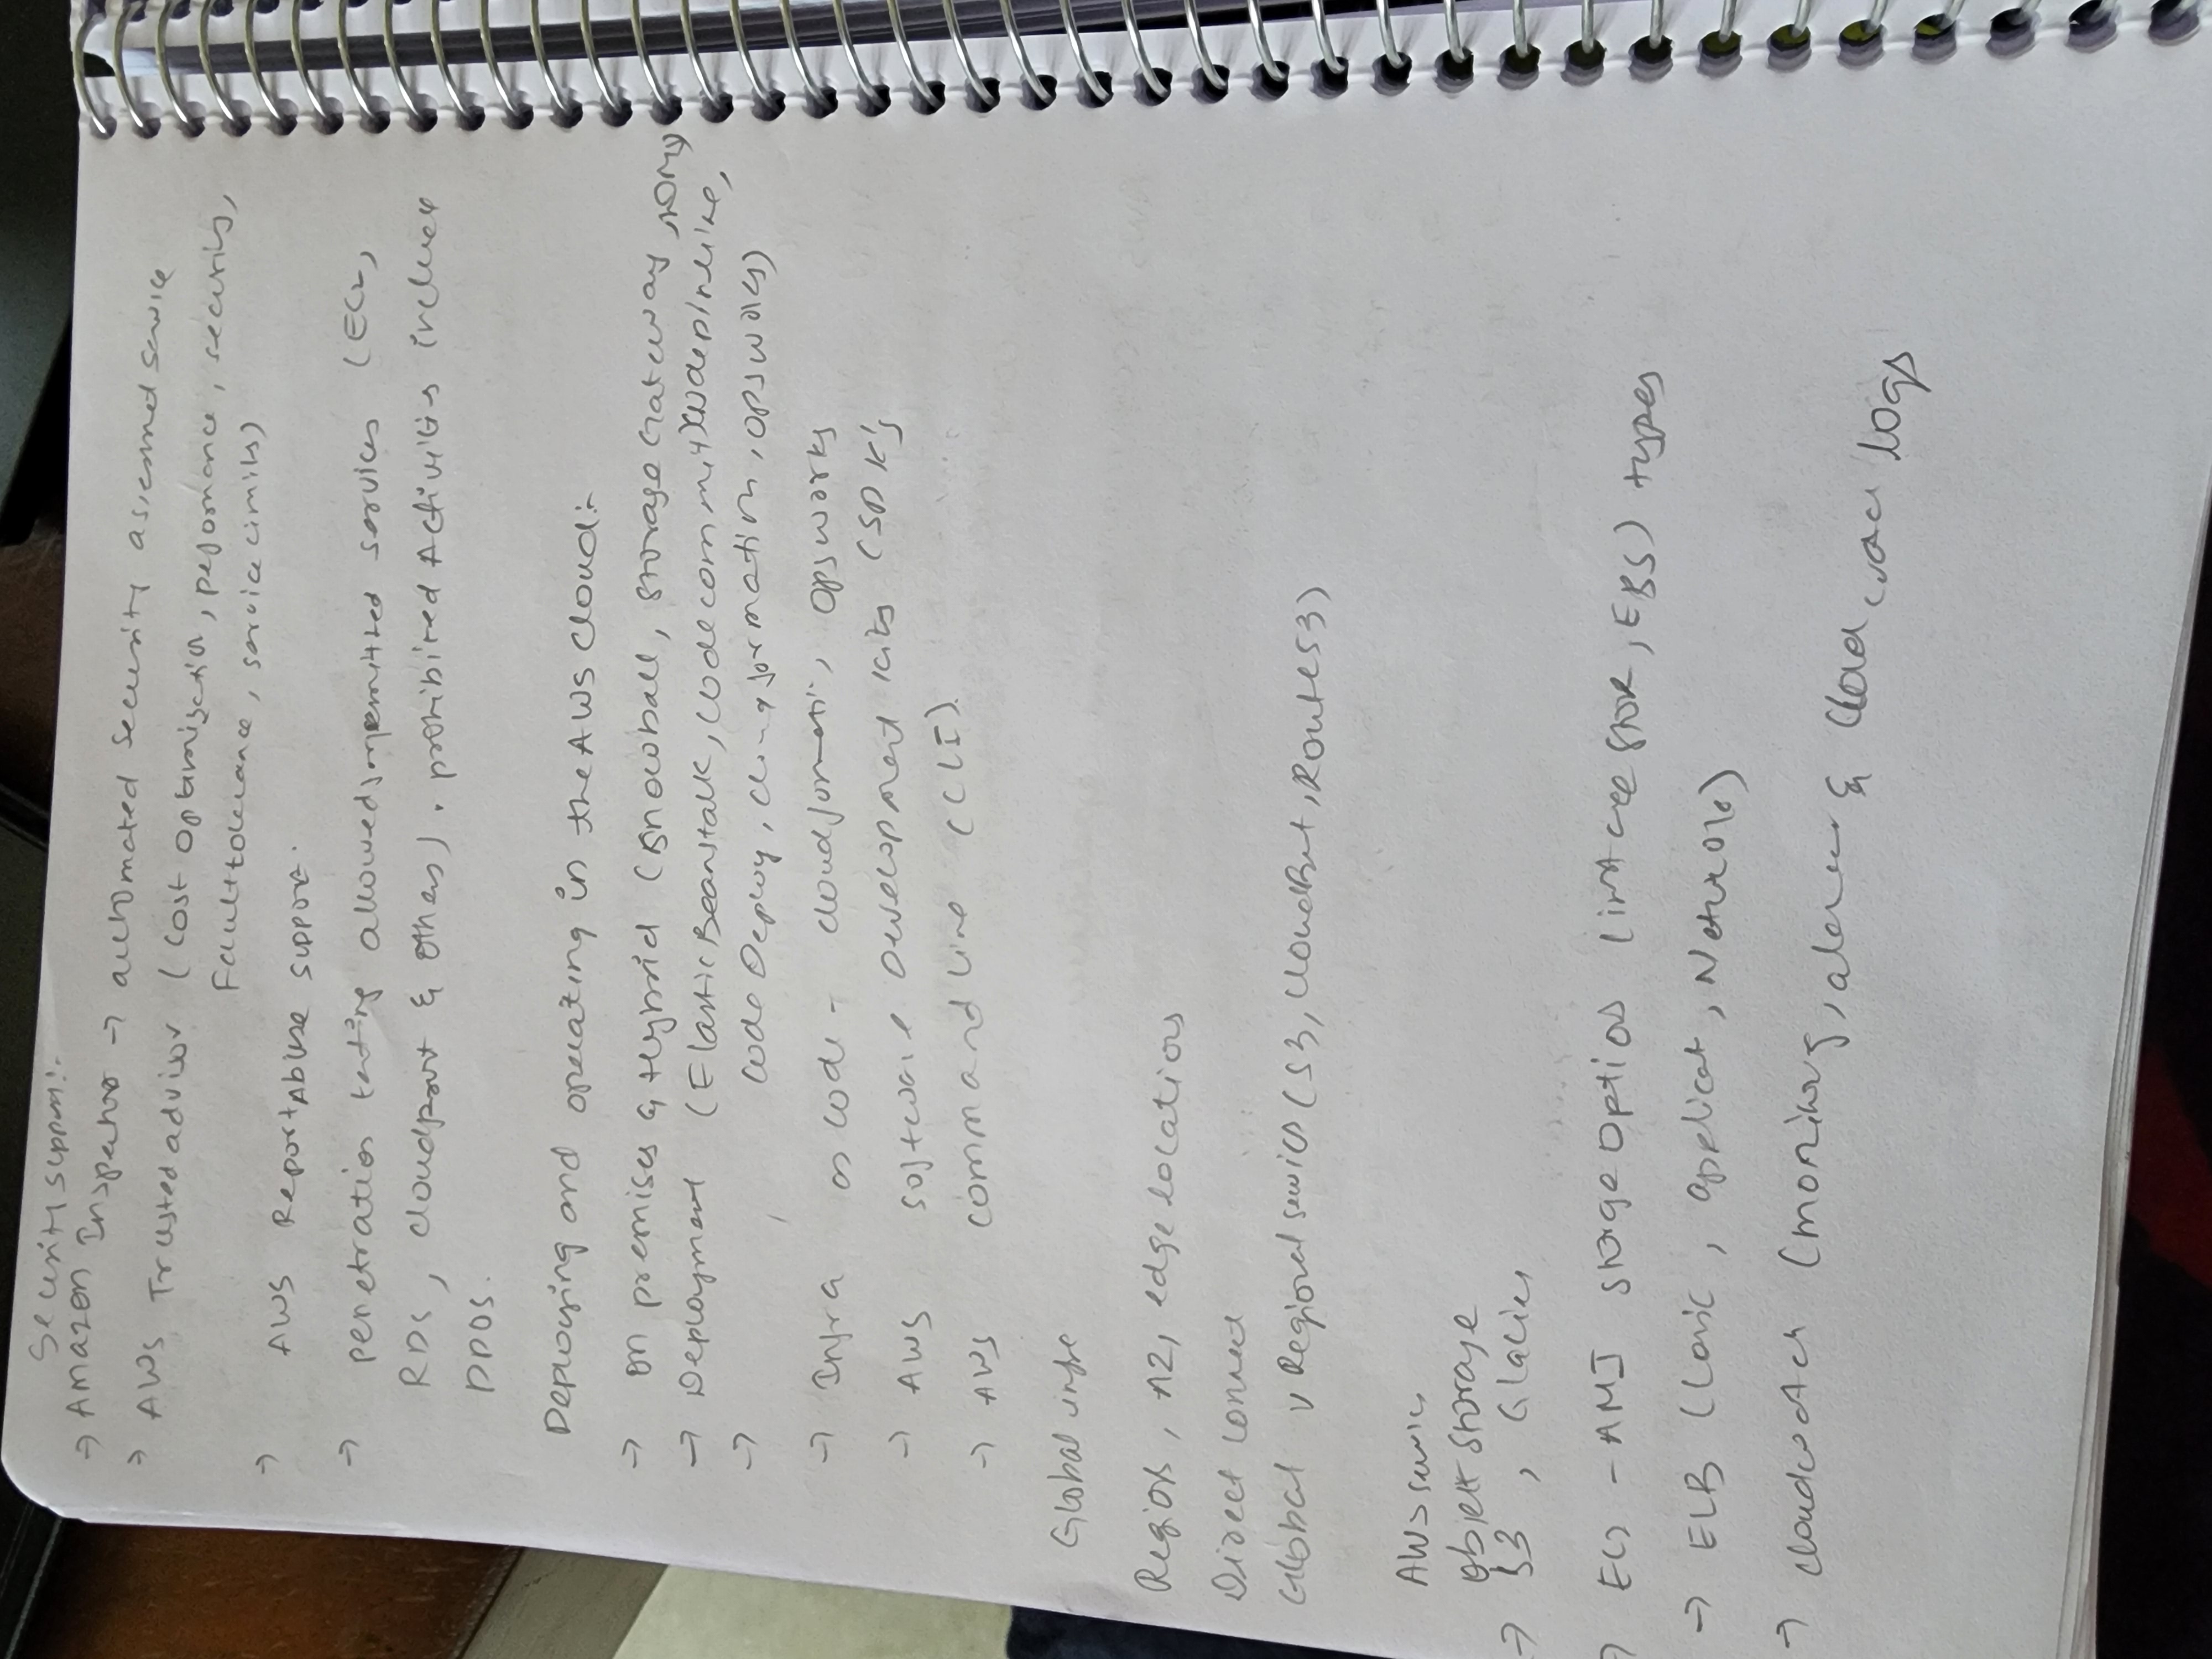 Security support:-
→ Amazon Inspector → automated security assessment service
→ AWS Trusted advisor (Cost Optimization, performance, security,
Fault tolerance, service limits)
→ AWS Report Abuse support.
→ penetration testing allowed permitted services (EC2,
RDS, cloudfront & others). prohibited Activities include
DDOS.
Deploying and operating in the AWS cloud:-
→ on premises & Hybrid (Snowball, Storage Gateway,
→ Deployment (Elastic Beanstalk, codecommit, codepipeline,
→ Code Deploy, cloudformation, opsworks)
→ Infra as code - cloudformati, opsworks
→ AWS software Development kits (SDK's
→ AWS command line (CLI).
Global infra
Regions, AZ, edge locations
Direct connect
Global v Regional services (S3, Cloudfront, Route53)
AWS servics
object storage
→ S3, Glacier
→ EC2 - AMI storage options (instance store, EBS) types
→ ELB (Classic, applicat, Network)
→ cloudwatch (monitoring, alarms & Cloud watch logs